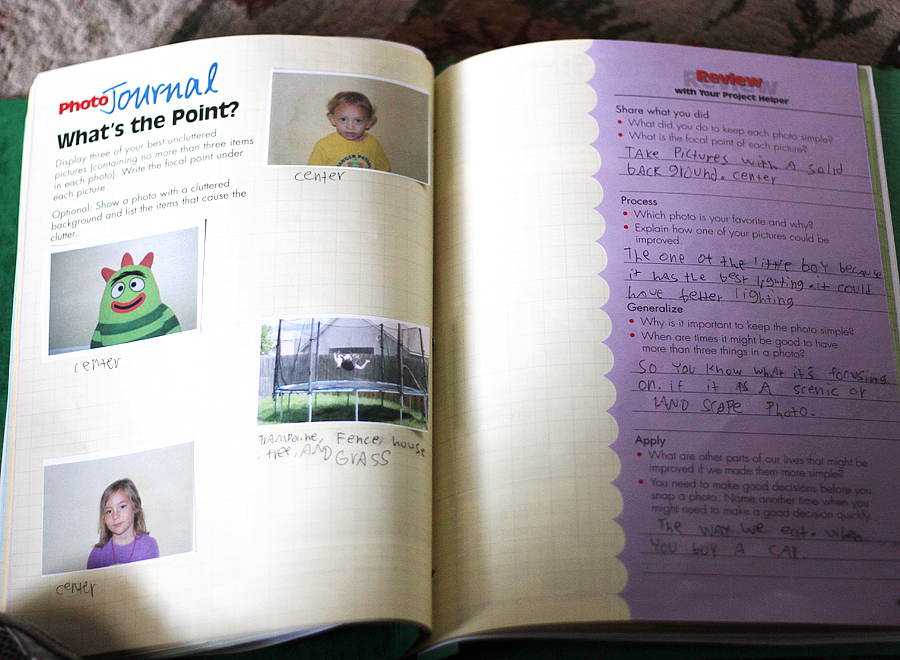 Photo Journal
What's the Point?
Display three of your best uncluttered
pictures (containing no more than three items
in each photo). Write the focal point under
each picture.
Optional: Show a photo with a cluttered
background and list the items that cause the
clutter.
center
center
Trampoline, Fence, house
, tree, AND GRASS
center
Review
with Your Project Helper
Share what you did
• What did you do to keep each photo simple?
• What is the focal point of each picture?
TAKE Pictures with A solid
back ground. center
Process
• Which photo is your favorite and why?
• Explain how one of your pictures could be
improved.
The one of the little boy because
it has the best lighting. It could
have better lighting
Generalize
• Why is it important to keep the photo simple?
• When are times it might be good to have
more than three things in a photo?
So You Know what it's focusing
on. if it is A scenic or
LAND SCAPE Photo.
Apply
• What are other parts of our lives that might be
improved if we made them more simple?
• You need to make good decisions before you
snap a photo. Name another time when you
might need to make a good decision quickly.
The way we eat. when
YOU BUY A CAR.